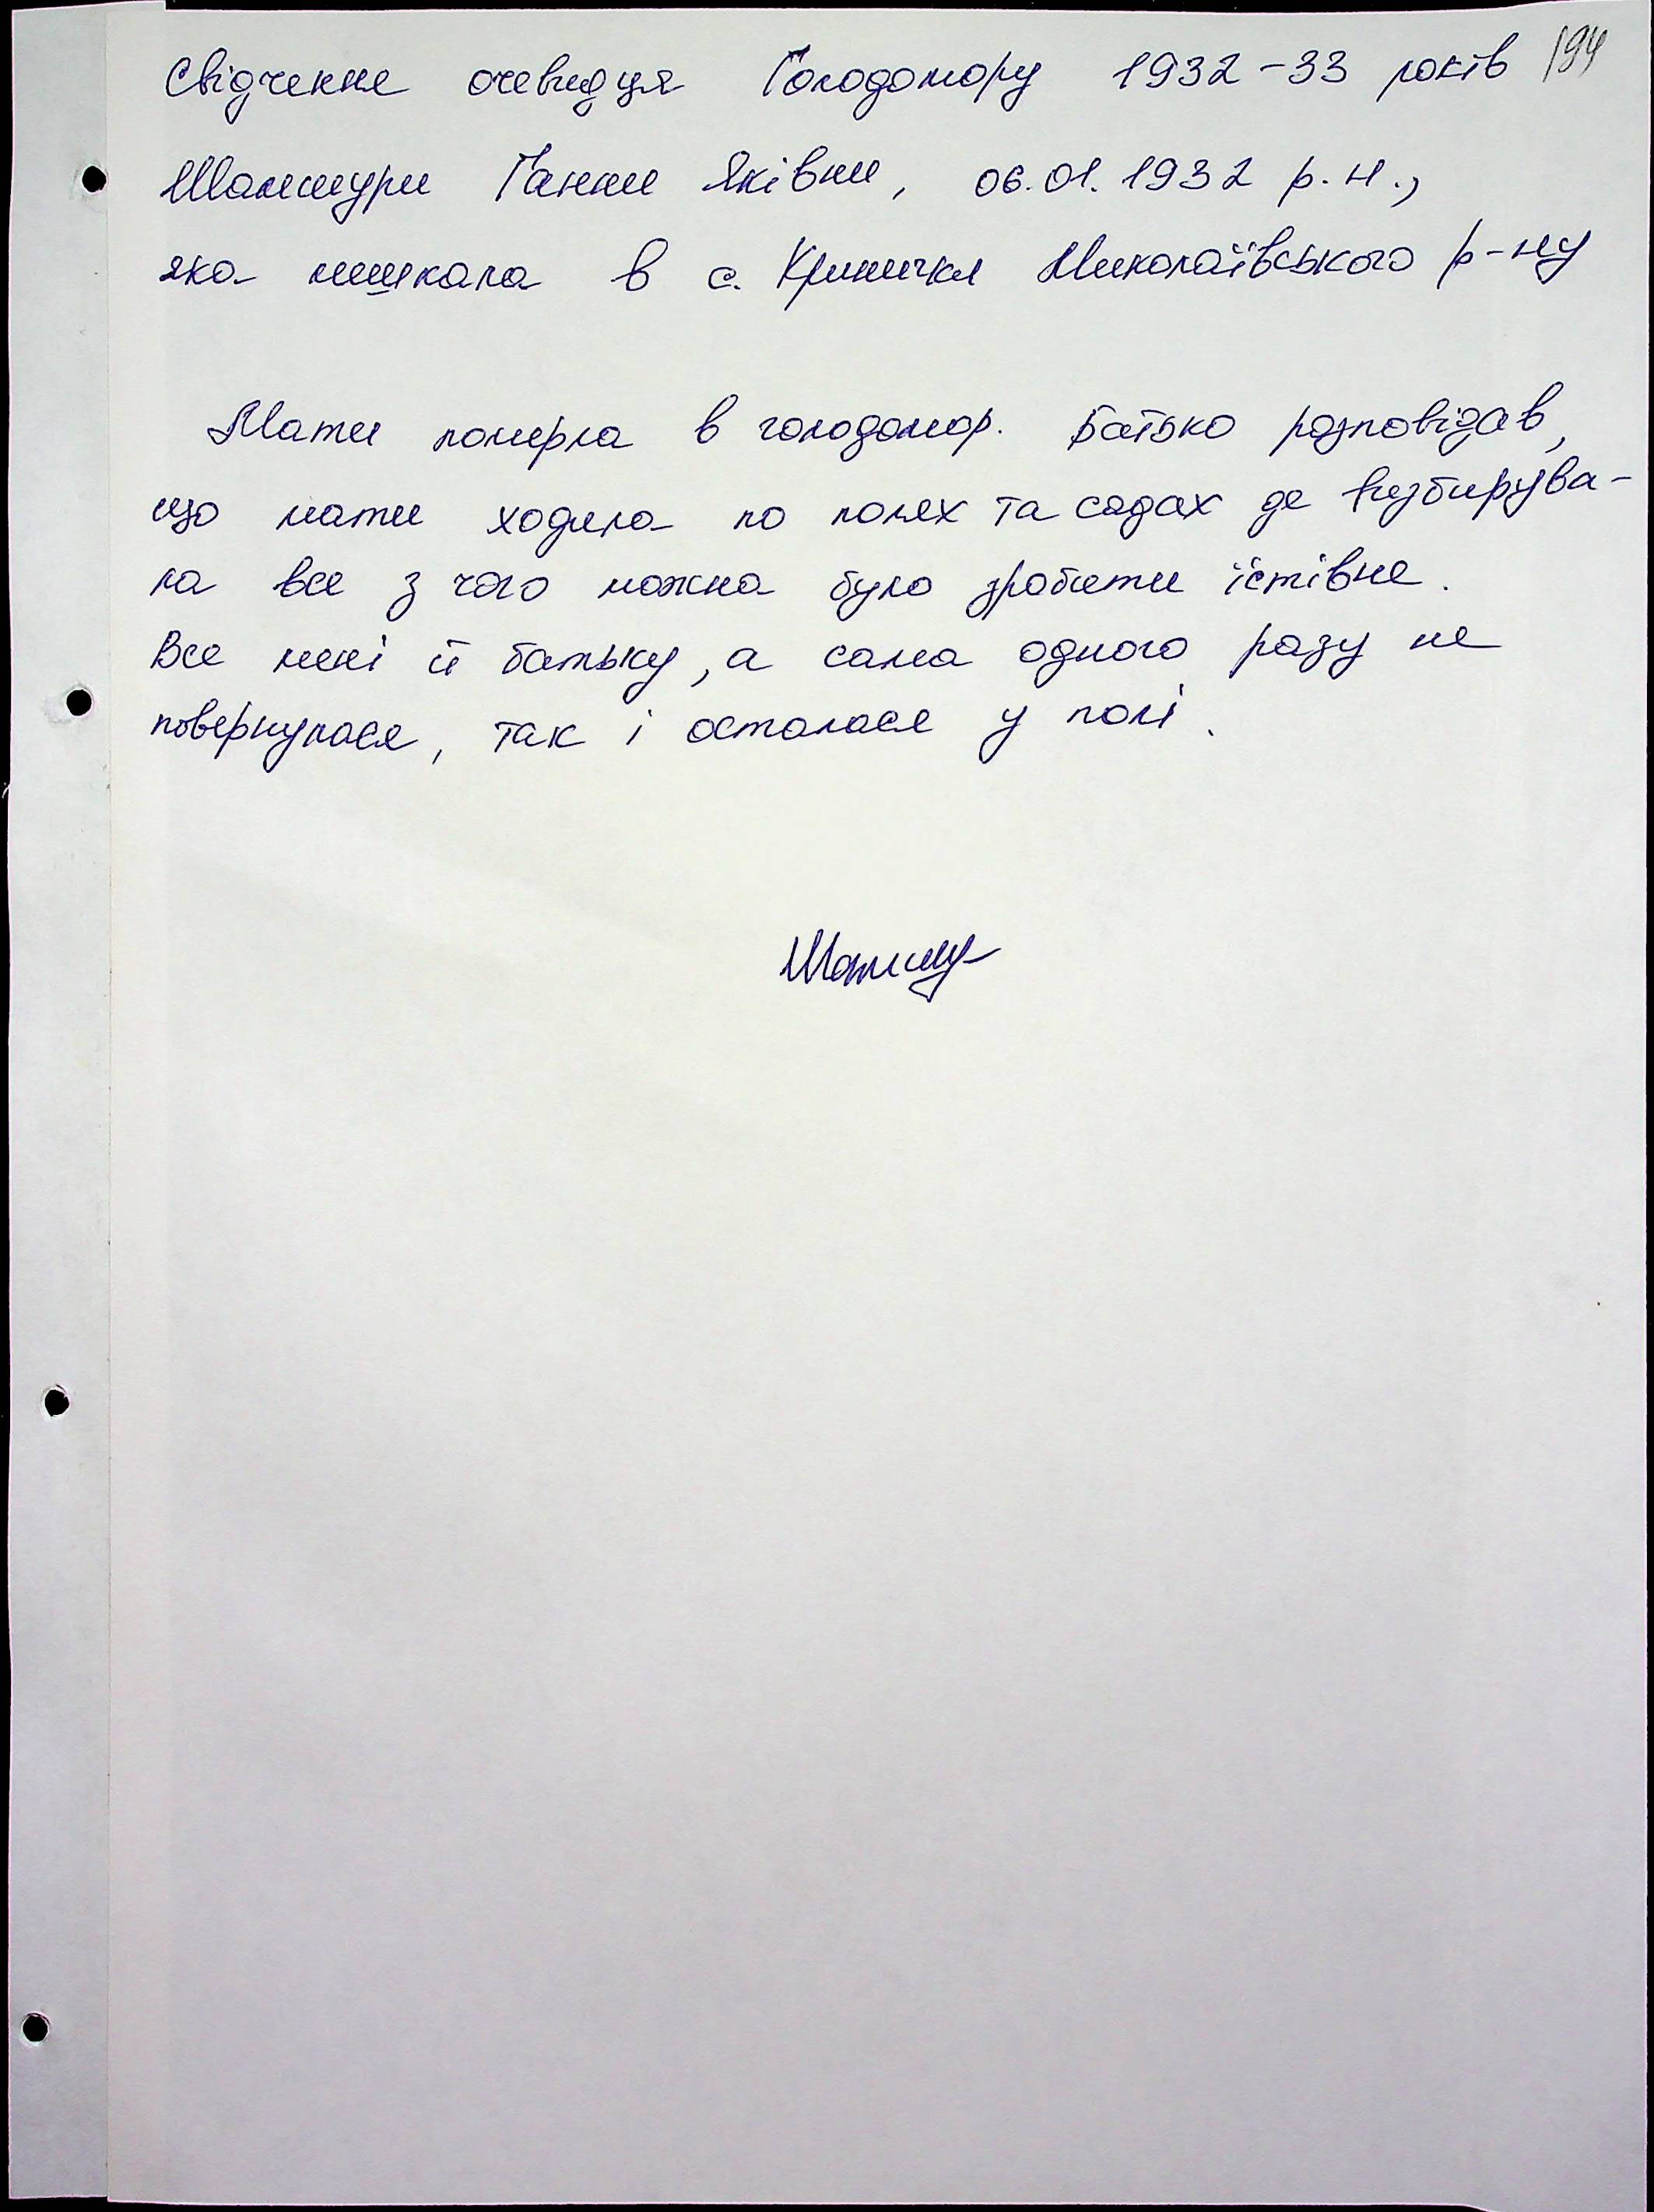 Свідчення очевидця Голодомору 1932-33 років 194
Шамшури Ганни Яківни, 06.01.1932 р.н.,
яка мешкала в с. Кринички Миколаївського р-ну
Мати померла в голодомор. Батько розповідав,
що мати ходила по полях та садах де визбирува-
ла все з чого можна було зробити їстівне.
Все мені й батьку, а сама одного разу не
повернулася, так і осталася у полі.